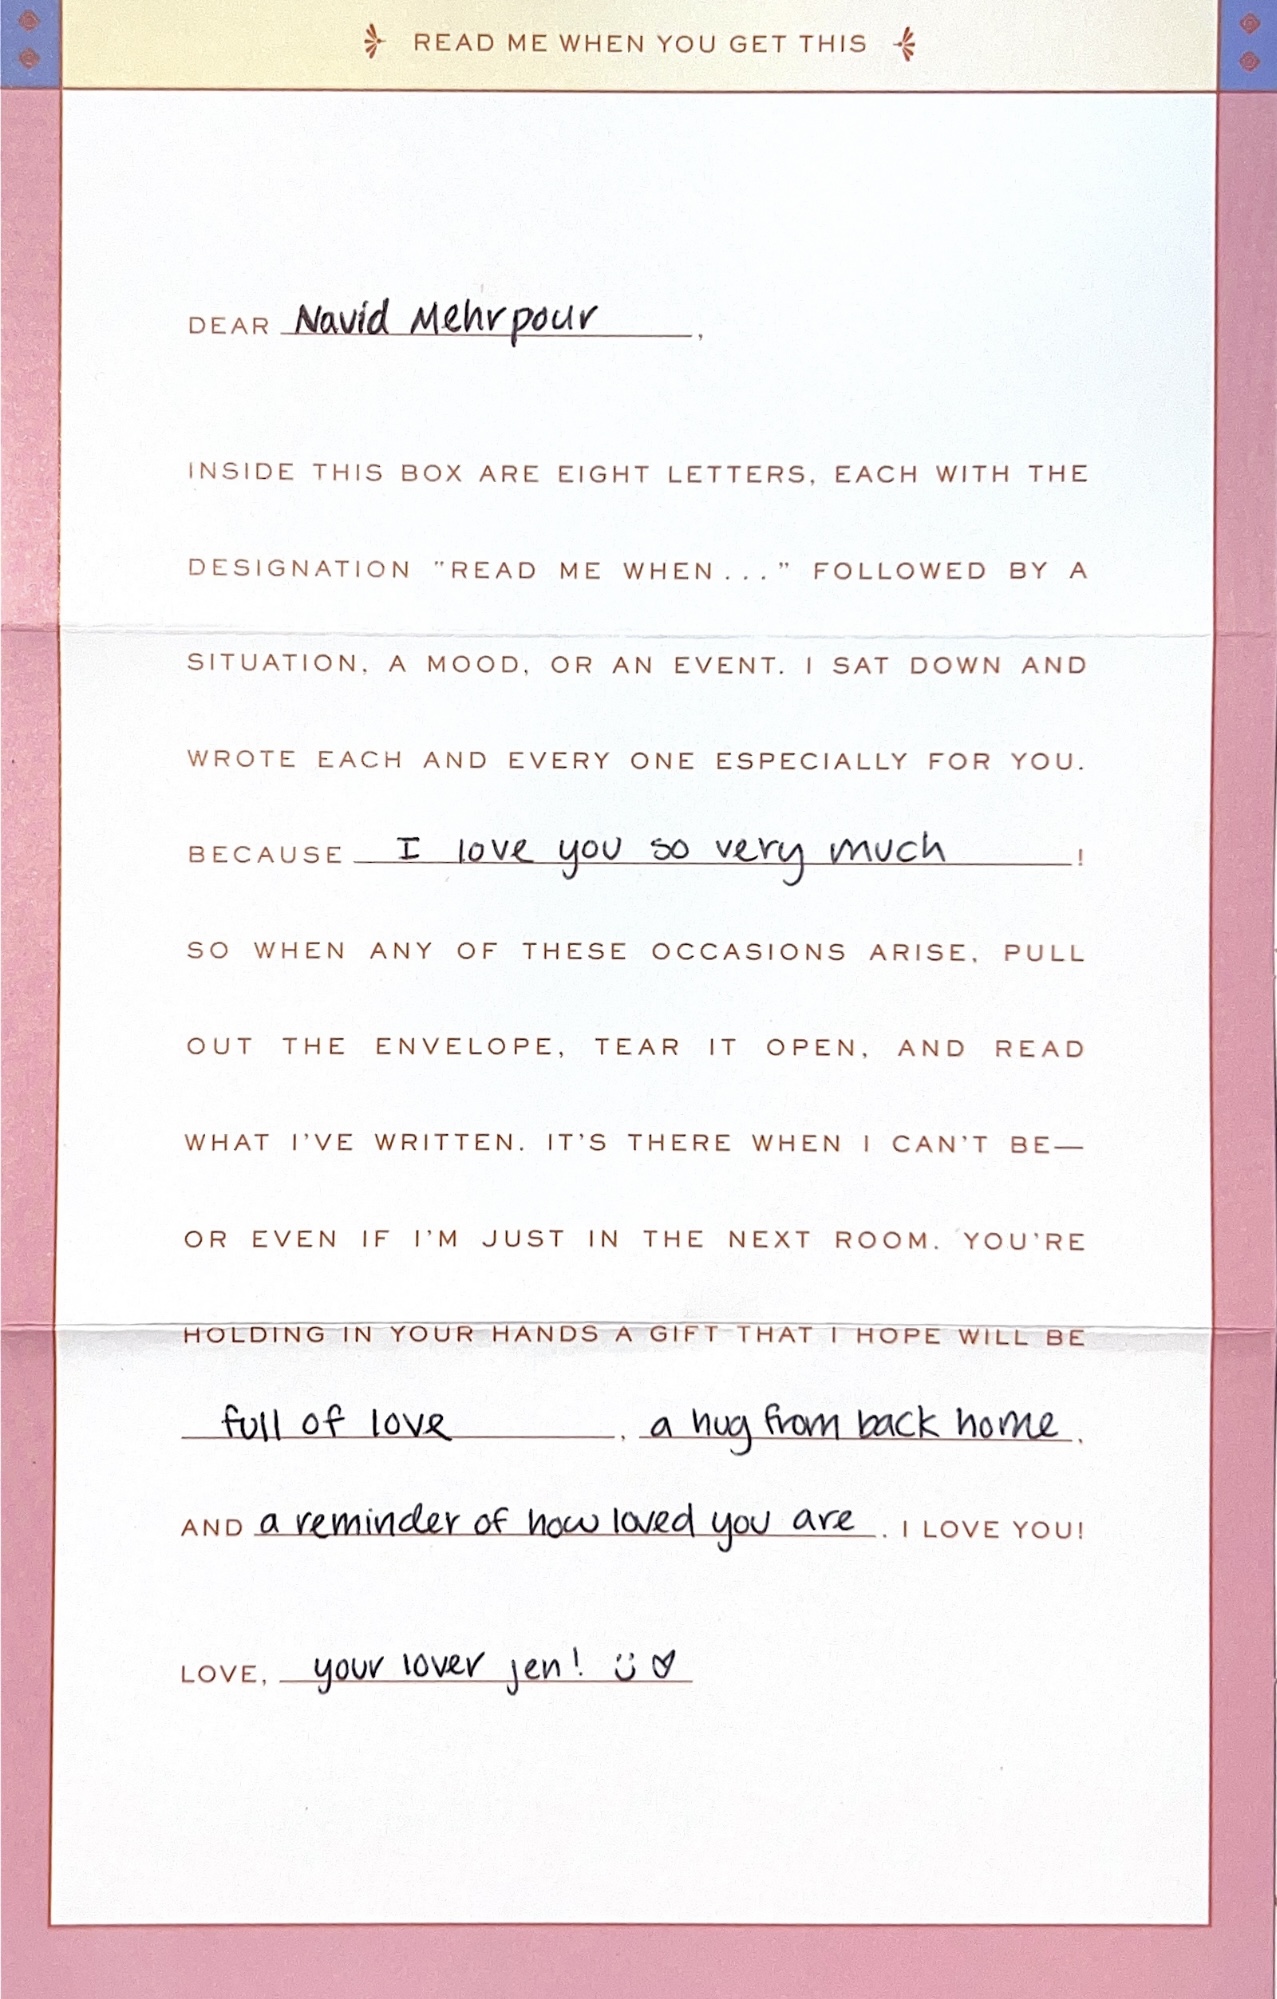 READ ME WHEN YOU GET THIS
DEAR Navid Mehrpour,
INSIDE THIS BOX ARE EIGHT LETTERS, EACH WITH THE
DESIGNATION "READ ME WHEN..." FOLLOWED BY A
SITUATION, A MOOD, OR AN EVENT. I SAT DOWN AND
WROTE EACH AND EVERY ONE ESPECIALLY FOR YOU.
BECAUSE I love you so very much!
SO WHEN ANY OF THESE OCCASIONS ARISE, PULL
OUT THE ENVELOPE, TEAR IT OPEN, AND READ
WHAT I'VE WRITTEN. IT'S THERE WHEN I CAN'T BE—
OR EVEN IF I'M JUST IN THE NEXT ROOM. YOU'RE
HOLDING IN YOUR HANDS A GIFT THAT I HOPE WILL BE
full of love, a hug from back home,
AND a reminder of how loved you are. I LOVE YOU!
LOVE, your lover jen! ü ♡